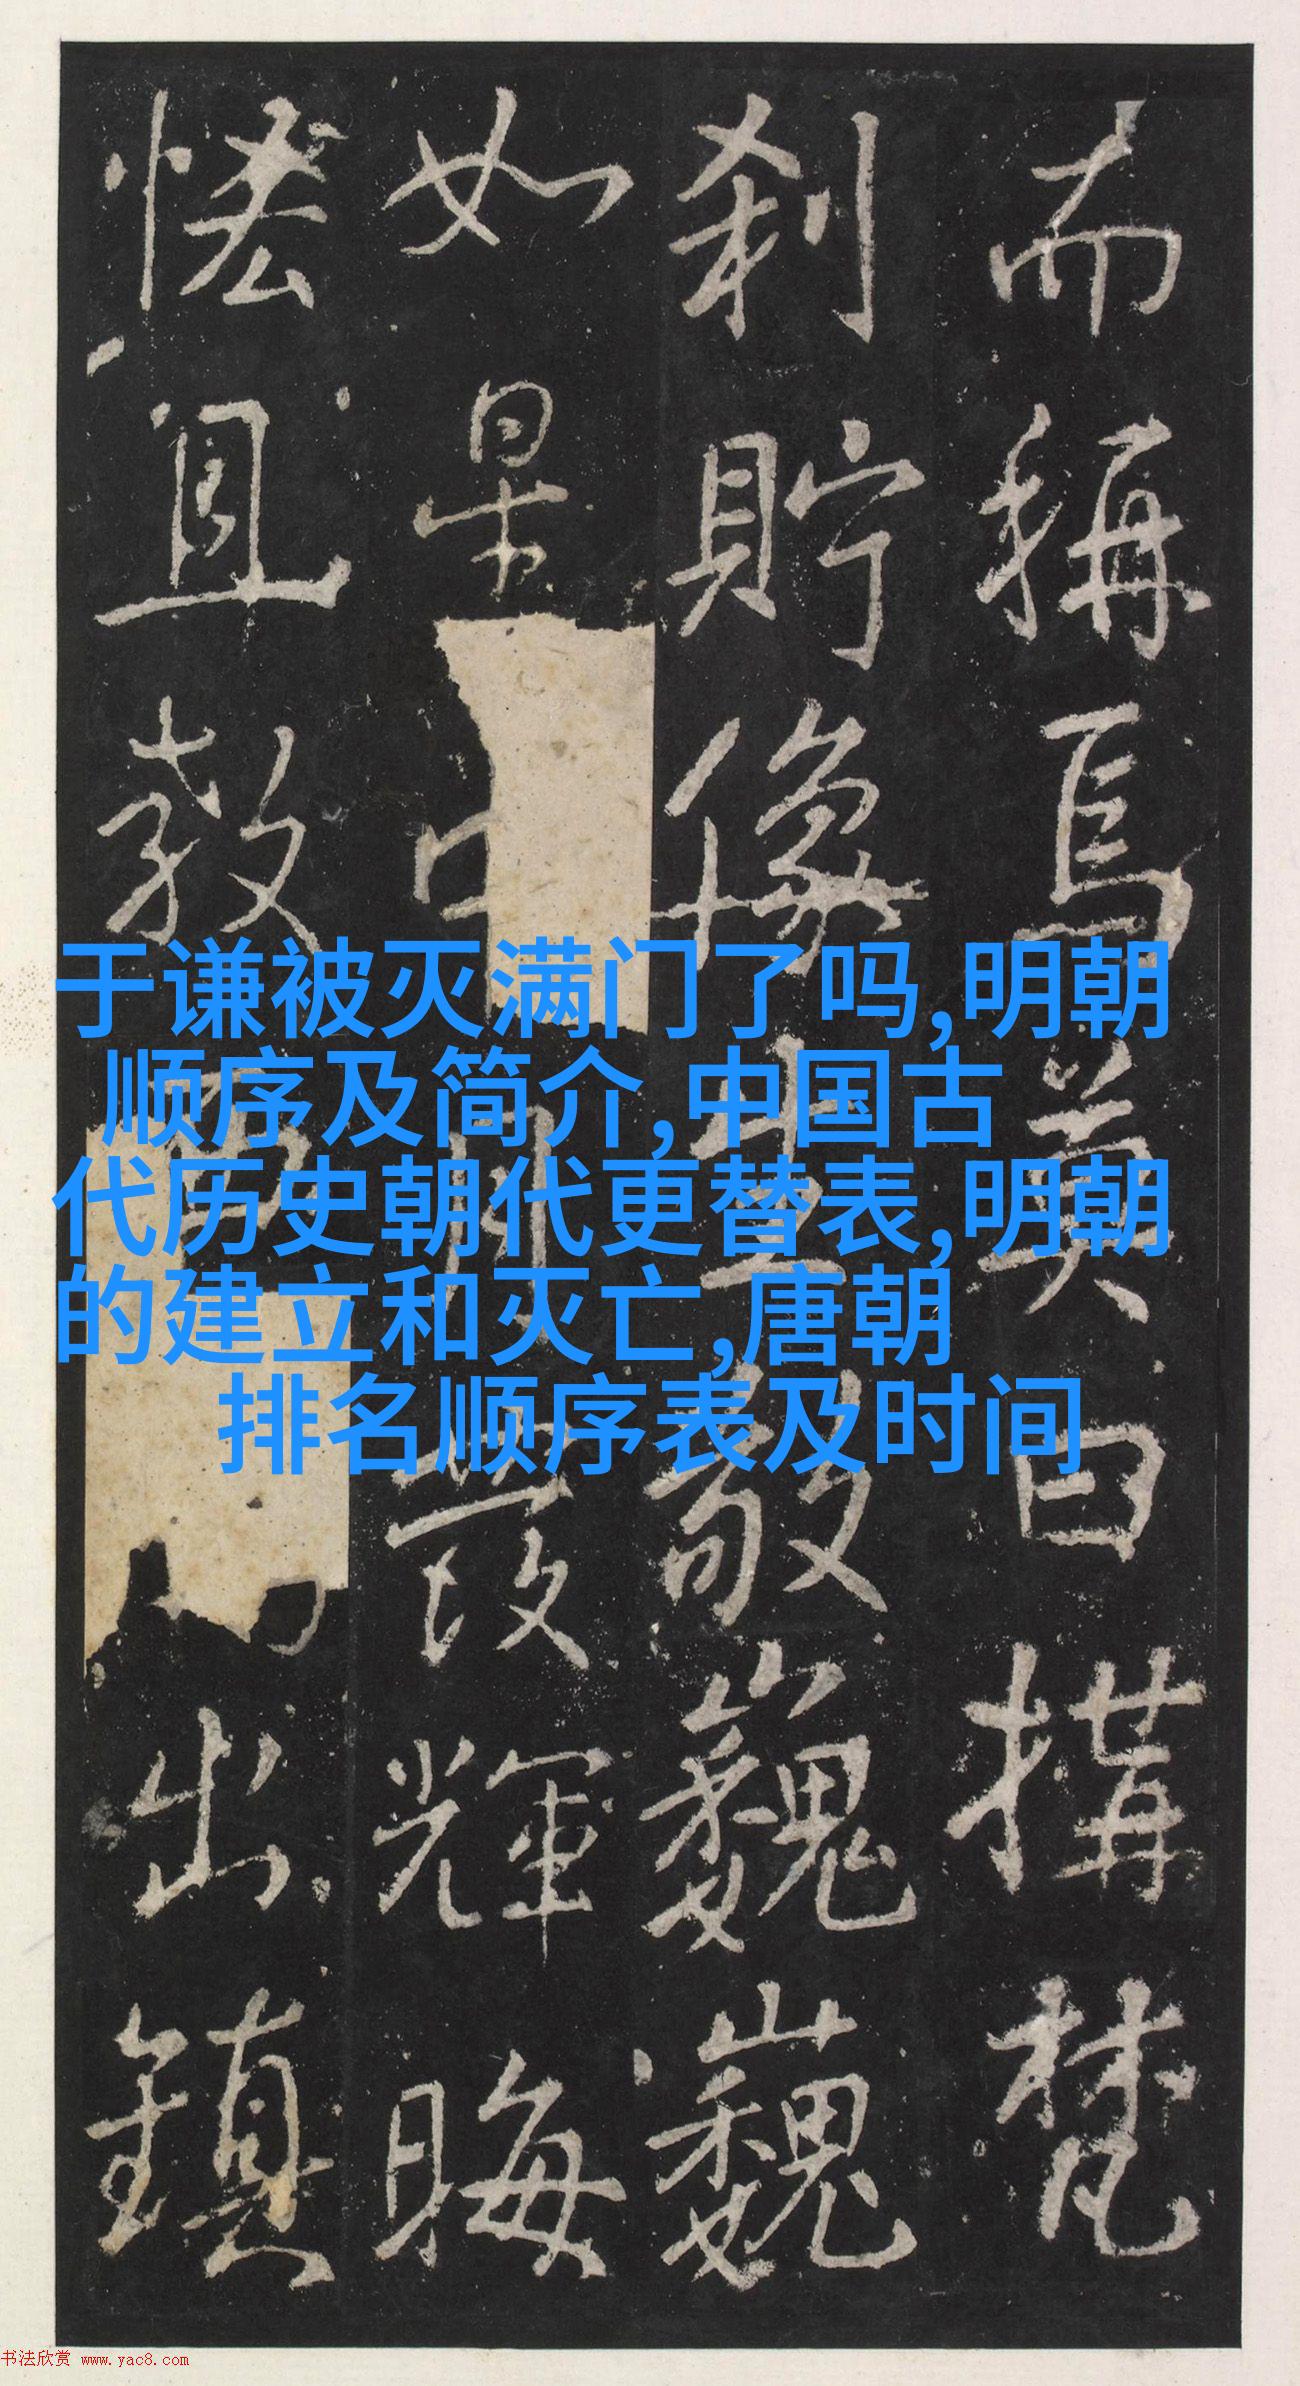 而稱焉曰搆梵
刹貯像巍巍
如輝晦
教出鎮
于谦被灭满门了吗,明朝
顺序及简介,中国古
代历史朝代更替表,明朝
的建立和灭亡,唐朝
排名顺序表及时间
书法欣赏 www.yac8.com